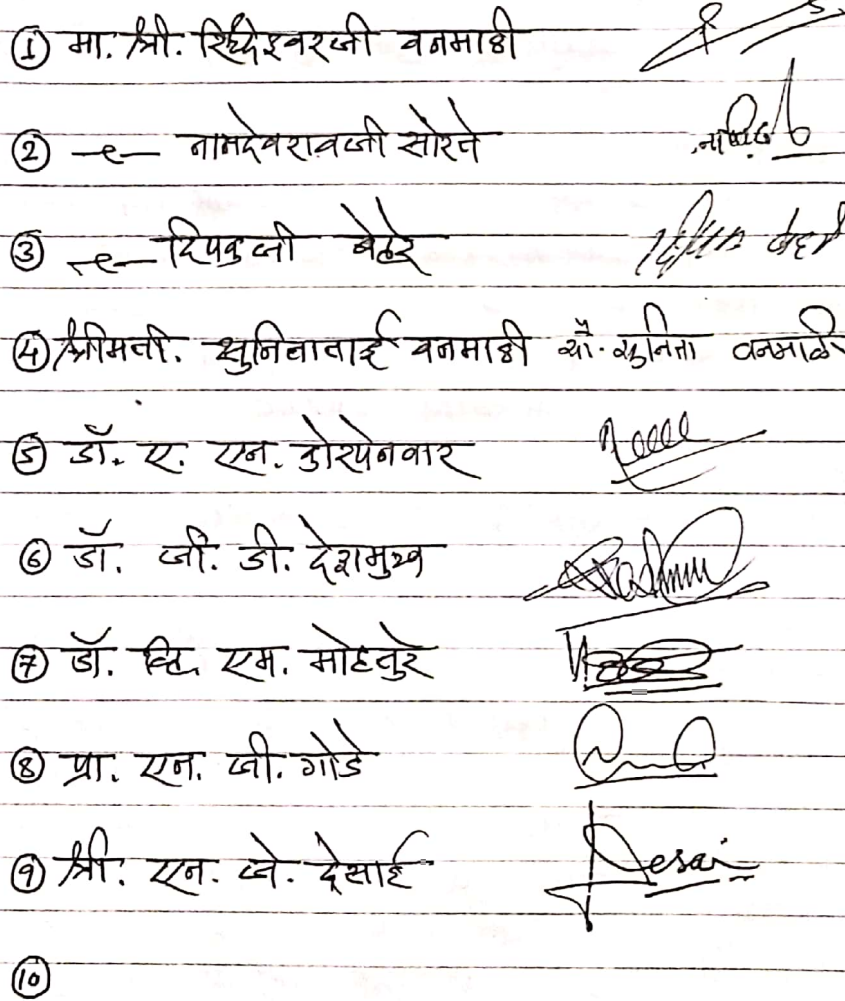 ① मा. श्री. सिध्देश्वरजी वनमाळी
② —"— नामदेवरावजी सोरते
③ —"— दिपकजी बेहरे दिपक बेहरे
④ श्रीमती. सुनिताताई वनमाळी सौ. सुनिता वनमाळी
⑤ डॉ. ए. एन. कोरपेनवार
⑥ डॉ. जी. डी. देशमुख
⑦ डॉ. व्हि. एम. मोहतुरे
⑧ प्रा. एन. जी. गोडे
⑨ श्री. एन. जे. देसाई Desai
⑩